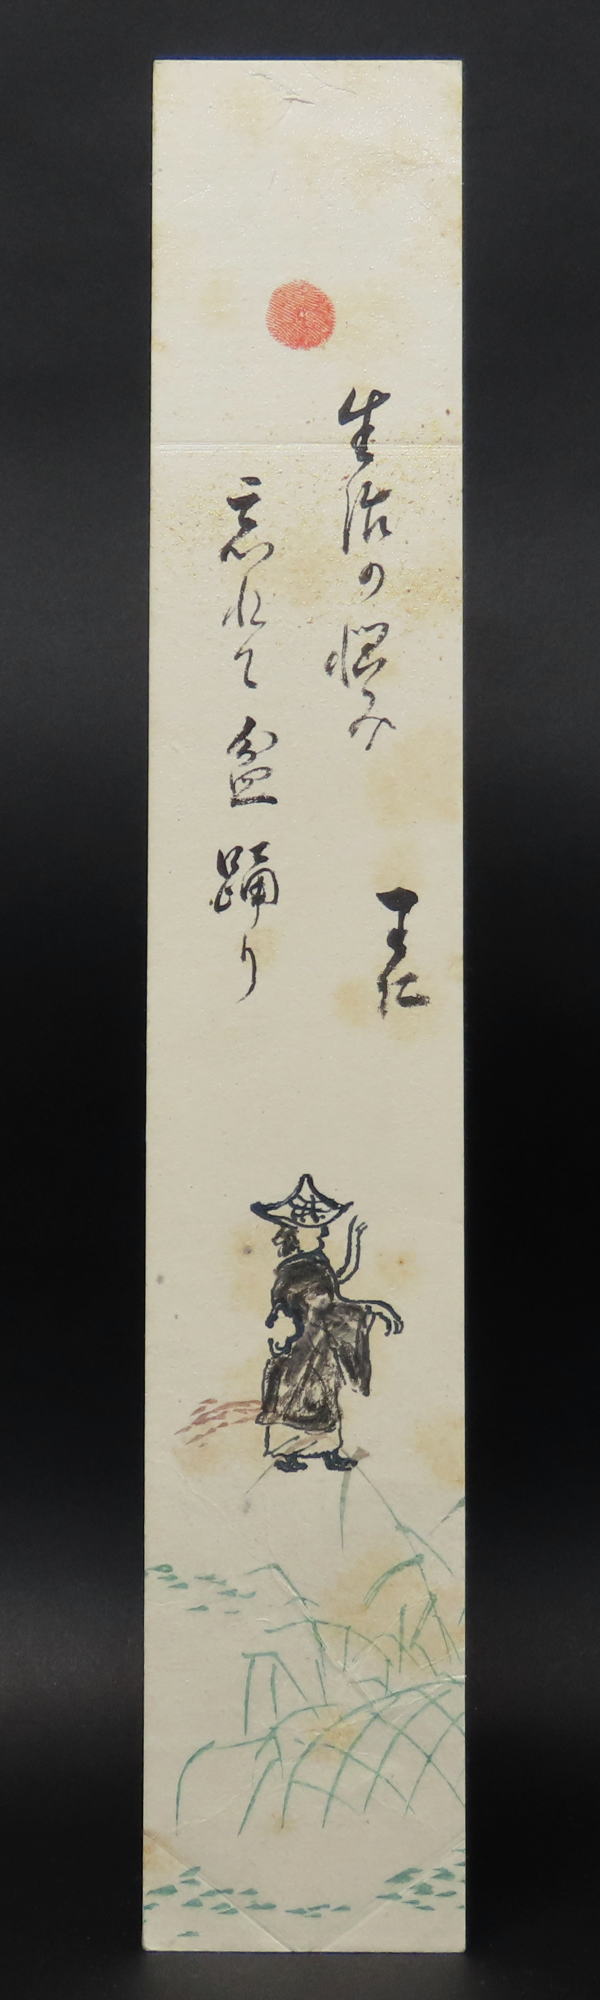 生活の悩み
忘れて盆踊り
王仁